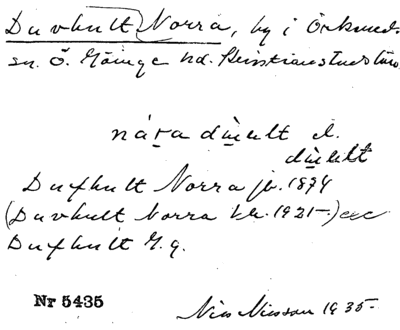 Duvhult Norra, by i Örkened
sn. Ö. Göinge hd. Kristianstads län.
nára dùult el.
dùlt
Dufhult Norra jb. 1874
(Duvhult Norra kk. 1921-)
Dufhult G. g.
Nr 5435
Nils Nilsson 1935-